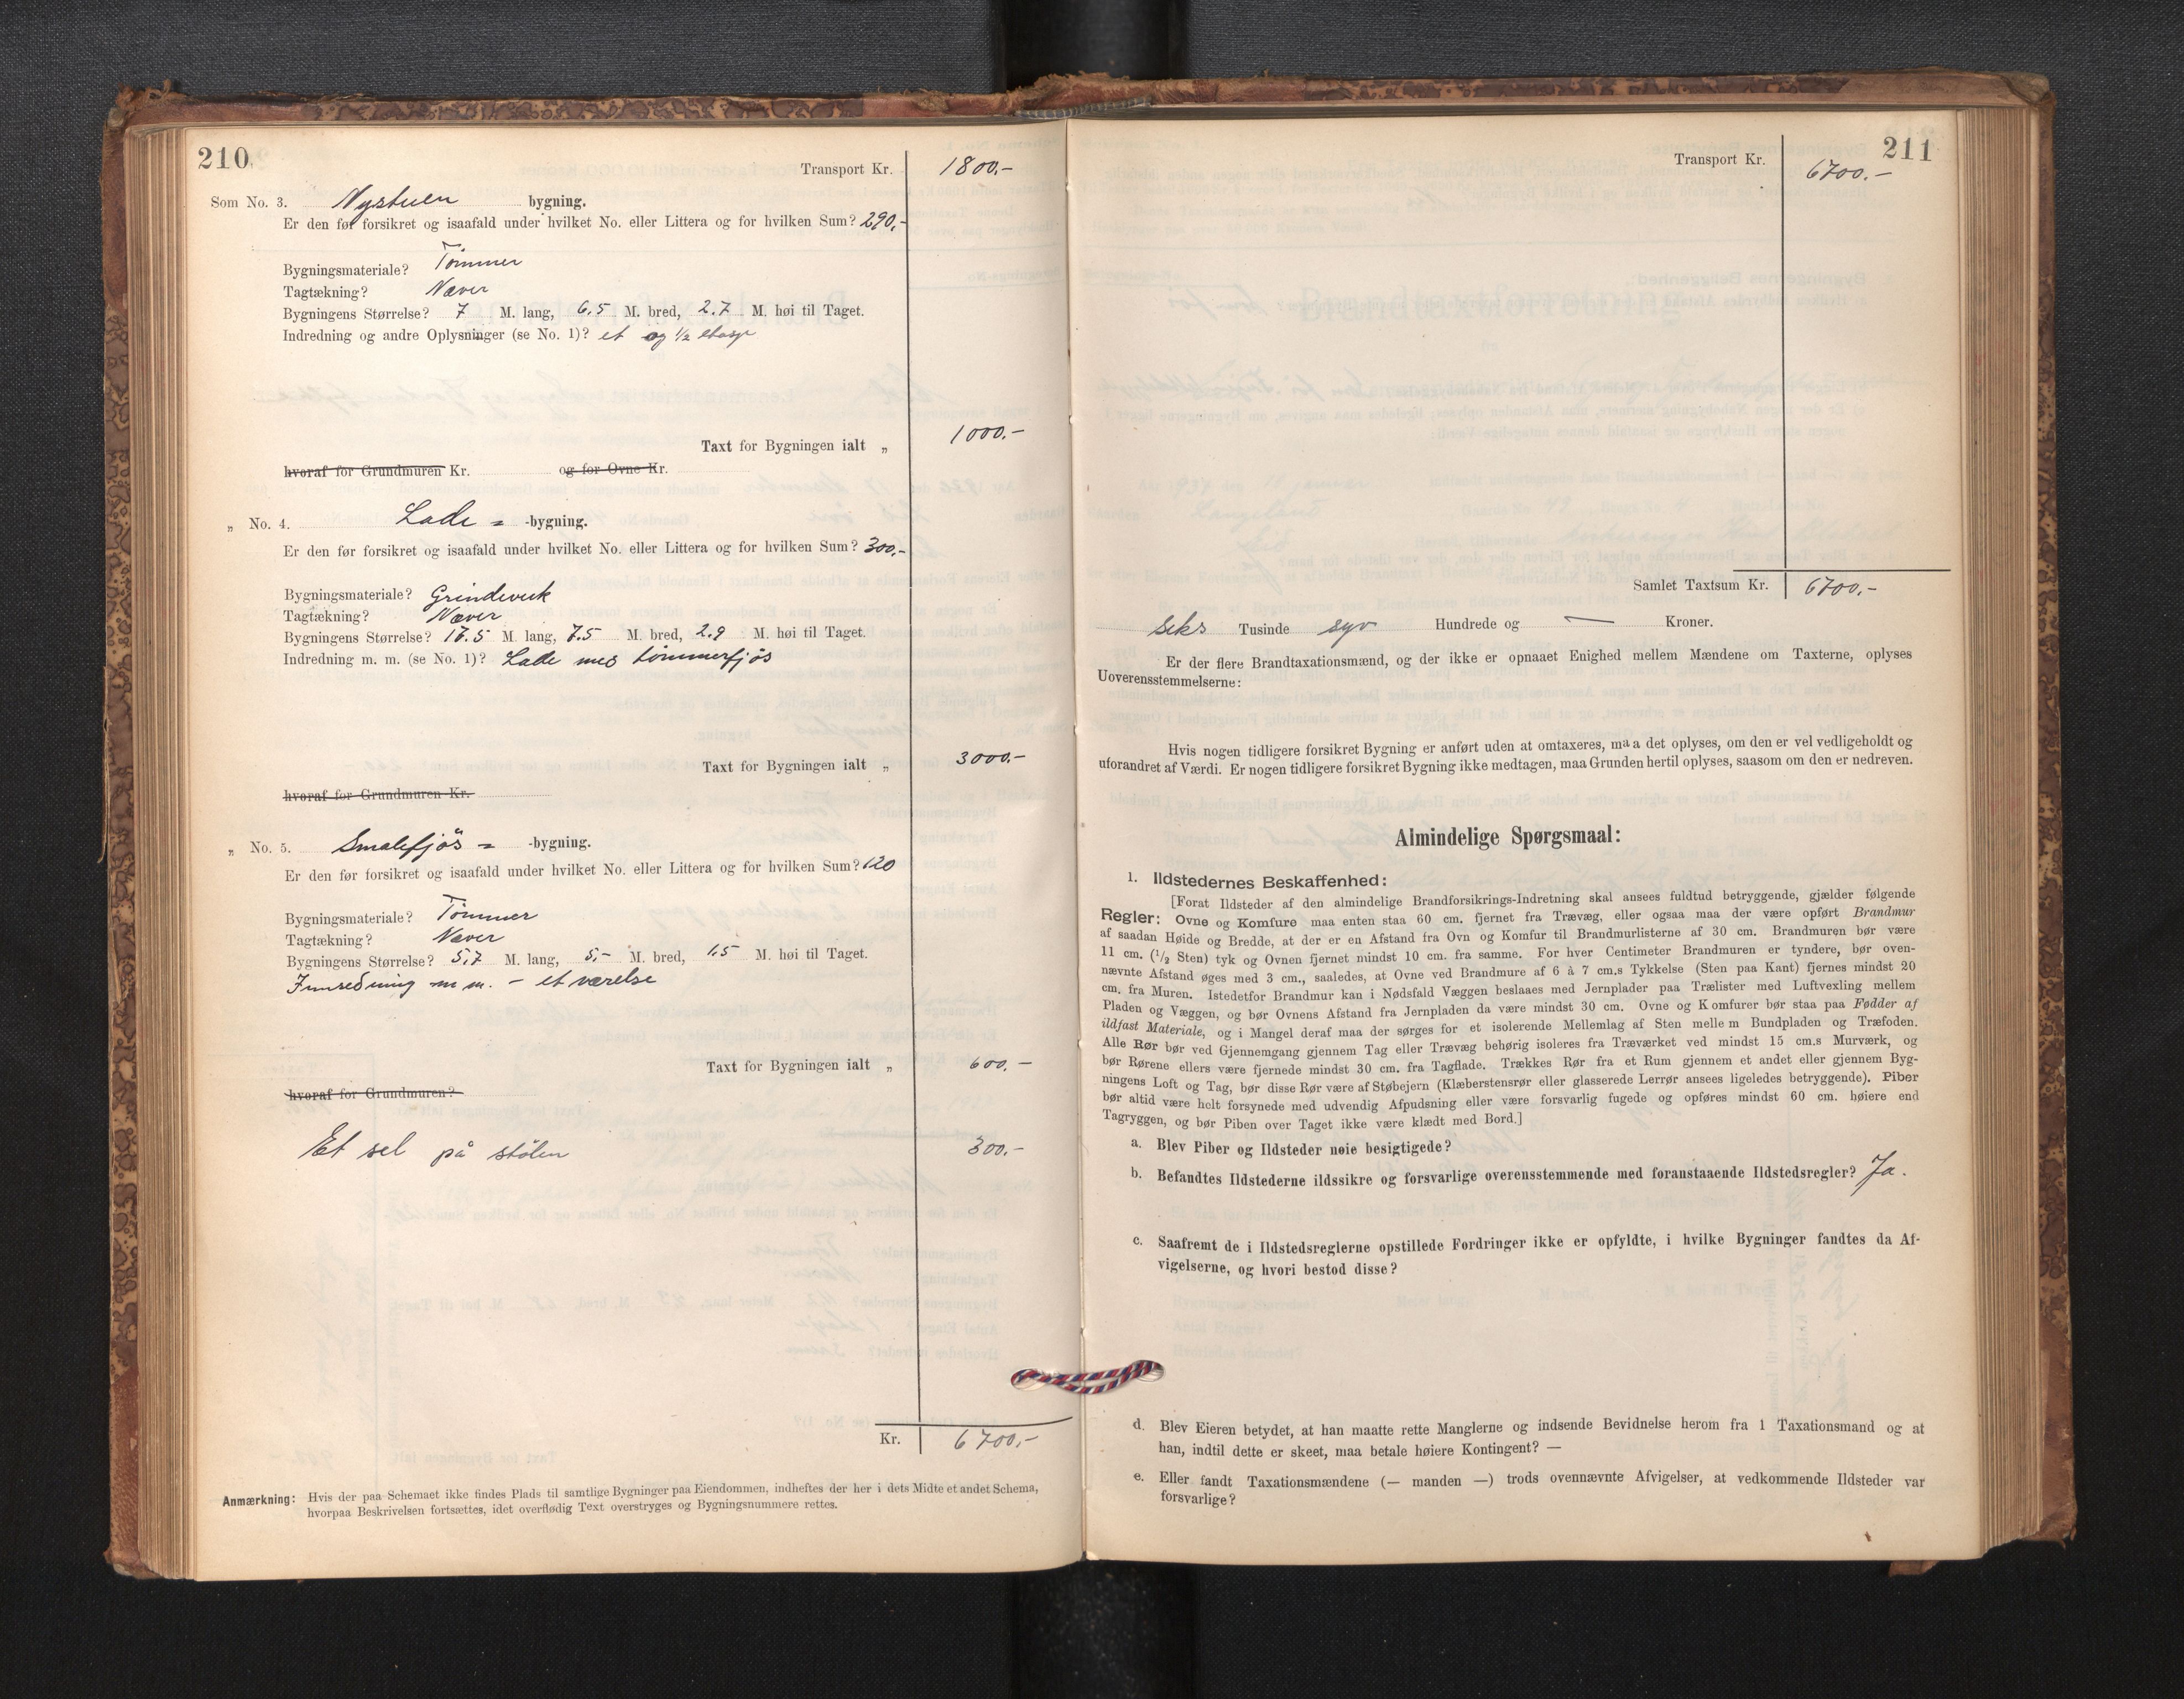 210
Transport Kr. 1800.-
Som No. 3. Nystuen bygning.
Er den før forsikret og isaafald under hvilket No. eller Littera og for hvilken Sum? 290.-
Bygningsmateriale? Tömmer
Tagtækning? Næver
Bygningens Størrelse? 7 M. lang, 6.5 M. bred, 2.7 M. høi til Taget.
Indredning og andre Oplysninger (se No. 1)? et og 1/2 etasje
Taxt for Bygningen ialt „ 1000.-
hvoraf for Grundmuren Kr. og for Ovne Kr.
„ No. 4. Lade = -bygning.
Er den før forsikret og isaafald under hvilket No. eller Littera og for hvilken Sum? 300.-
Bygningsmateriale? Grindeverk
Tagtækning? Næver
Bygningens Størrelse? 17.5 M. lang, 7.5 M. bred, 2.9 M. høi til Taget.
Indredning m. m. (se No. 1)? Lade med tömmerfjös
Taxt for Bygningen ialt „ 3000.-
hvoraf for Grundmuren Kr.
„ No. 5. Smalefjös = -bygning.
Er den før forsikret og isaafald under hvilket No. eller Littera og for hvilken Sum? 120
Bygningsmateriale? Tömmer
Tagtækning? Næver
Bygningens Størrelse? 5,7 M. lang, 5,- M. bred, 1.5 M. høi til Taget.
Innredning m m. - et værelse
Taxt for Bygningen ialt „ 600.-
hvoraf for Grundmuren?
Et sel på stölen 300.-
Kr. 6700.-
Anmærkning: Hvis der paa Schemaet ikke findes Plads til samtlige Bygninger paa Eiendommen, indheftes der her i dets Midte et andet Schema,
hvorpaa Beskrivelsen fortsættes, idet overflødig Text overstryges og Bygningsnummere rettes.
211
Transport Kr. 6700.-
Samlet Taxtsum Kr. 6700.-
seks Tusinde syv Hundrede og — Kroner.
Er der flere Brandtaxationsmænd, og der ikke er opnaaet Enighed mellem Mændene om Taxterne, oplyses
Uoverensstemmelserne:
Hvis nogen tidligere forsikret Bygning er anført uden at omtaxeres, maa det oplyses, om den er vel vedligeholdt og
uforandret af Værdi. Er nogen tidligere forsikret Bygning ikke medtagen, maa Grunden hertil oplyses, saasom om den er nedreven.
Almindelige Spørgsmaal:
1. Ildstedernes Beskaffenhed:
[Forat Ildsteder af den almindelige Brandforsikrings-Indretning skal ansees fuldtud betryggende, gjælder følgende
Regler: Ovne og Komfure maa enten staa 60 cm. fjernet fra Trævæg, eller ogsaa maa der være opført Brandmur
af saadan Høide og Bredde, at der er en Afstand fra Ovn og Komfur til Brandmurlisterne af 30 cm. Brandmuren bør være
11 cm. (1/2 Sten) tyk og Ovnen fjernet mindst 10 cm. fra samme. For hver Centimeter Brandmuren er tyndere, bør oven-
nævnte Afstand øges med 3 cm., saaledes, at Ovne ved Brandmure af 6 à 7 cm.s Tykkelse (Sten paa Kant) fjernes mindst 20
cm. fra Muren. Istedetfor Brandmur kan i Nødsfald Væggen beslaaes med Jernplader paa Trælister med Luftvexling mellem
Pladen og Væggen, og bør Ovnens Afstand fra Jernpladen da være mindst 30 cm. Ovne og Komfurer bør staa paa Fødder af
ildfast Materiale, og i Mangel deraf maa der sørges for et isolerende Mellemlag af Sten mellem Bundpladen og Træfoden.
Alle Rør bør ved Gjennemgang gjennem Tag eller Trævæg behørig isoleres fra Træværket ved mindst 15 cm.s Murværk, og
bør Rørene ellers være fjernede mindst 30 cm. fra Tagflade. Trækkes Rør fra et Rum gjennem et andet eller gjennem Byg-
ningens Loft og Tag, bør disse Rør være af Støbejern (Klæberstensrør eller glasserede Lerrør ansees ligeledes betryggende). Piber
bør altid være helt forsynede med udvendig Afpudsning eller være forsvarlig fugede og opføres mindst 60 cm. høiere end
Tagryggen, og bør Piben over Taget ikke være klædt med Bord.]
a. Blev Piber og Ildsteder nøie besigtigede?
b. Befandtes Ildstederne ildssikre og forsvarlige overensstemmende med foranstaaende Ildstedsregler? Ja.
c. Saafremt de i Ildstedsreglerne opstillede Fordringer ikke er opfyldte, i hvilke Bygninger fandtes da Af-
vigelserne, og hvori bestod disse?
d. Blev Eieren betydet, at han maatte rette Manglerne og indsende Bevidnelse herom fra 1 Taxationsmand og at
han, indtil dette er skeet, maa betale høiere Kontingent? —
e. Eller fandt Taxationsmændene (— manden —) trods ovennævnte Afvigelser, at vedkommende Ildsteder var
forsvarlige?